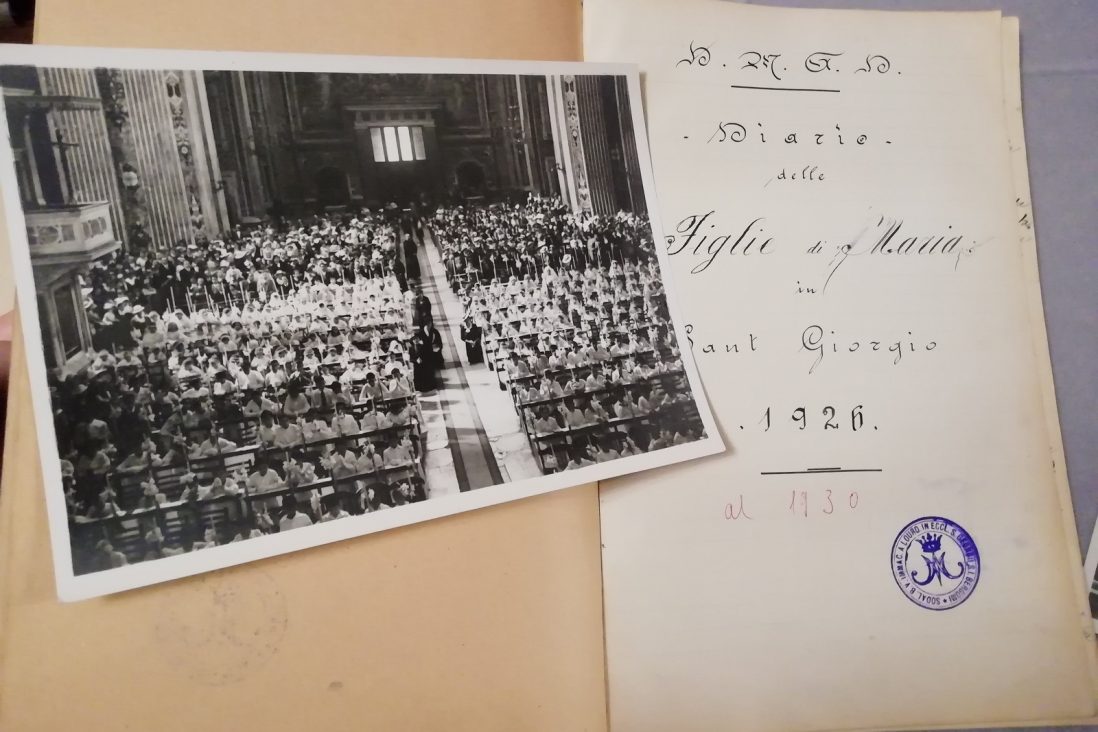 D. M. G. D.
- Diario -
delle
Figlie di Maria
in
Sant Giorgio
. 1926.
al 1930
SODAL. B. V. IMMAC. A LOURD IN ECCL. S. GEORGII S. I BERGOMI